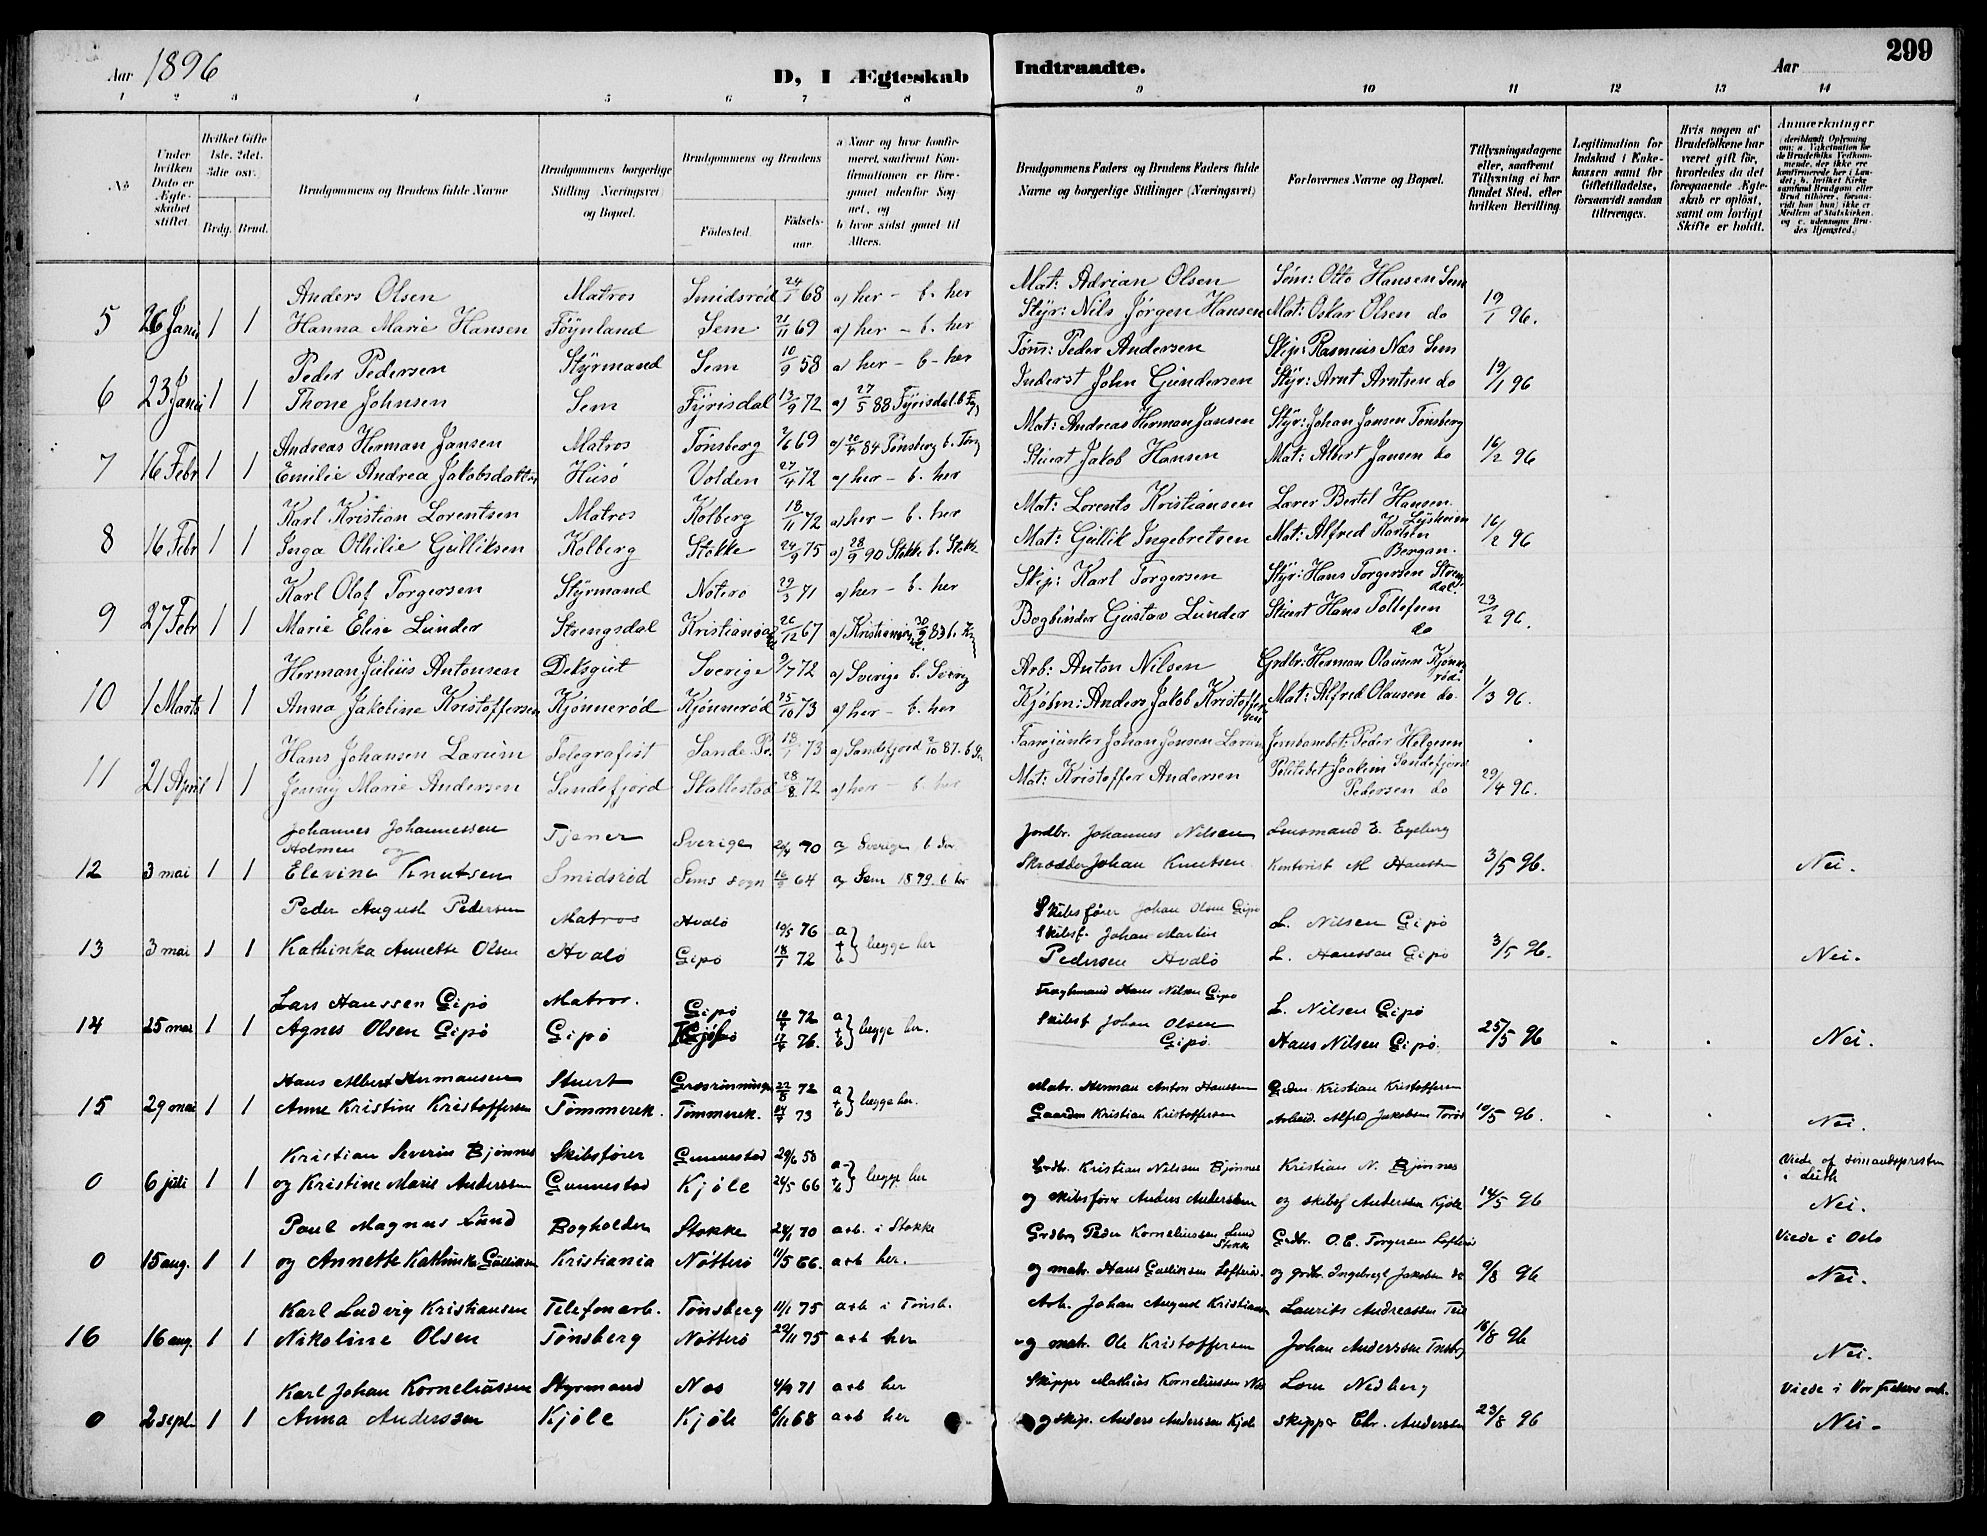 299
Aar 1896
D, I Ægteskab Indtraadte.
Aar
1 2 3 4 5 6 7 8 9 10 11 12 13 14
No
Under hvilken Dato er Ægteskabet stiftet
Hvilket Gifte 1ste, 2det, 3die osv.
Brdg. Brud.
Brudgommens og Brudens fulde Navne
Brudgommens borgerlige Stilling (Næringsvei) og Bopæl.
Brudgommens og Brudens
Födested. Födselsaar
a Naar og hvor konfirmeret, saafremt Konfirmationen er foregaaet udenfor Sognet, og
b hvor sidst gaaet til Alters.
Brudgommens Faders og Brudens Faders fulde Navne og borgerlige Stillinger (Næringsvei)
Forlovernes Navne og Bopæl.
Tillysningsdagene eller, saafremt Tillysning ei har fundet Sted, efter hvilken Bevilling
Legitimation for Indskud i Enkekassen samt for Giftetilladelse, forsaavidt saadan tiltrænges.
Hvis nogen af Brudefolkene har været gift før, hvorledes da det foregaaende Ægteskab er oplöst, samt om lovligt Skifte er holdt.
Anmærkninger
Anders Olsen Matros Smidsrød 24/1 68 a) her - b. her Mat: Adrian Olsen Søm: Otto Hansen Sem
5 26 Janu 1 1 Hanna Marie Hansen Føynland Sem 21/11 69 a) her - b. her Styr: Nils Jørgen Hansen Mat: Oskar Olsen do 19/1 96.
Peder Pedersen Styrmand Sem 10/9 58 a) her - b - her Tøm: Peder Andersen Skip: Rasmus Næs Sem
6 23 Janu 1 1 Thone Johnsen Sem Fyrisdal 13/9 72 a) 27/5 88 Fyrisdal. b Inderst John Gundersen Styr: Arnt Arntsen do 19/1 96
Andreas Herman Jansen Matros Tønsberg 2/6 69 a) 84 Tønsberg b. Tbg Mat: Andreas Herman Jansen Styr: Johan Jansen Tønsberg
7 16 Febr 1 1 Emilie Andrea Jakobsdatter Husø Volden 27/4 72 a) her - b. her Stuert Jakob Hansen Mat: Albert Jansen do 16/2 96
Karl Kristian Lorentsen Matros Kolberg 18/11 72 a) her - b. her Mat: Lorents Kristiansen Lærer Bertel Hansen
8 16 Febr 1 1 Inga Othilie Gulliksen Kolberg Stokke 24/9 75 a) 28/9 90 Stokke b. Stokke Mat: Gullik Ingebretsen Mat: Alfred Karlsen Bergan. 16/2 96
Karl Olaf Torgersen Styrmand Notero 29/3 71 a) her - b. her Skip: Karl Torgersen Styr: Hans Torgersen
9 27 Febr 1 1 Marie Elise Lunder Strengsdal Kristiansa 26/12 67 Bogbinder Gustav Lunder Stuert Hans Tollefsen do 23/2 96.
Herman Julius Antonsen Deksgut Sverige 9/7 72 a) Sverige b. Sverig Arb: Anton Nilsen Grdbr: Herman Olausen Kjønnerød.
10 1 Marts 1 1 Anna Jakobine Kristoffersen Kjønnerød Kjønnerød 25/10 73 a) her - b. her Kjøbm: Anders Jakob Kristoffersen Mat: Alfred Olausen do. 1/3 96.
Hans Johansen Larum Telegrafist Sande Pr. 18/1 73 a) Sandefjord 2/10 87. Fanejunker Johan Jonsen Larum Jernbanbet: Peder Helgesen Sandefjord
11 21 April 1 1 Jenny Marie Andersen Sandefjord Skallestad 28/8 72 a) her - b. her Mat: Kristoffer Andersen Politibet Joakim Pedersen do 29/4 96.
Johannes Johannessen Holmen og Tjener Sverige 70 a Sverige, b Jordbr. Johannes Nilsen Lensmand E. Egeberg
12 3 mai 1 1 Elevine Knutsen Smidsrød Sems sogn 64 a Sem 1879. b her Skrædder Johan Knutsen Kontorist M Hanssen 3/5 96. Nei.
Peder August Pedersen Matros Hvalö 10/5 76 a + b } begge her Skibsfører Johan Olsen Gipø L. Nilsen Gipø
13 3 mai 1 1 Kathinka Annette Olsen Hvalö Gipø 18/1 72 Skibsf. Johan Martin Pedersen Hvalö L. Hanssen Gipø 3/5 96. Nei.
Lars Hanssen Gipø Matros. Gipø 72 a + b } begge her. Fragtemand Hans Nilsen Gipø L. Nilsen Gipø
14 25 mai 1 1 Agnes Olsen Gipø Gipø 76. Skibsf Johan Olsen Gipø. Hans Nilsen Gipø. 25/5 96 Nei.
Hans Albert Hermansen Stuert 22/8 72 a + b } begge her. Matr. Herman Anton Hanssen Kristian Kristoffersen
15 29 mai 1 1 Anne Kristine Kristoffersen Tømmerek. Tømmerek. 73 Gaardm Kristian Kristoffersen Arbeid. Alfred Jakobsen 10/5 96. Nei.
Kristian Severin Bjønnes Skibsfører Gunnestad 29/6 58 a + b } begge her Grdbr. Kristian Nilsen Bjønnes Kristian N. Bjønnes Viede af sømandspresten i Leith
0 6 juli 1 1 og Kristine Marie Anderssen Gunnestad Kjøle 24/5 66 og skibsfører Anders Anderssen og skibsf Anderssen Kjøle 14/5 96 Nei.
Paul Magnus Lund Bogholder Stokke 24/1 70 a+b. i Stokke Grdbrg Peder Korneliussen Lund Stokke Grdbr. O. E. Torgersen Viede i Oslo
0 15 aug. 1 1 og Annette Kathinka Gulliksen Kristiania Nøtterø 11/5 66. a+b her. og matr. Hans Gulliksen og grdbr. Ingebregt Jakobsen do 9/8 96 Nei.
Karl Ludvig Kristiansen Telefonarb. Tønsberg 11/1 75 a+b i Tønsb. Arb. Johan August Kristiansen Laurits Andreassen
16 16 aug. 1 1 Nikoline Olsen Tønsberg Nøtterø 29/11 75 a+b her og matr. Ole Kristoffersen Johan Anderssen Tnsbg 16/8 96 Nei.
Karl Johan Korneliussen Styrmand Nes 4/9 71 a+b her Skipper Mathias Korneliussen Nes Viede i Vor Frelsers
0 2 sept. 1 1 Anna Anderssen Kjøle Kjøle 5/11 68 a+b her og skip. Anders Anderssen Kjøle skipper Chr. Anderssen 23/8 96 Nei.